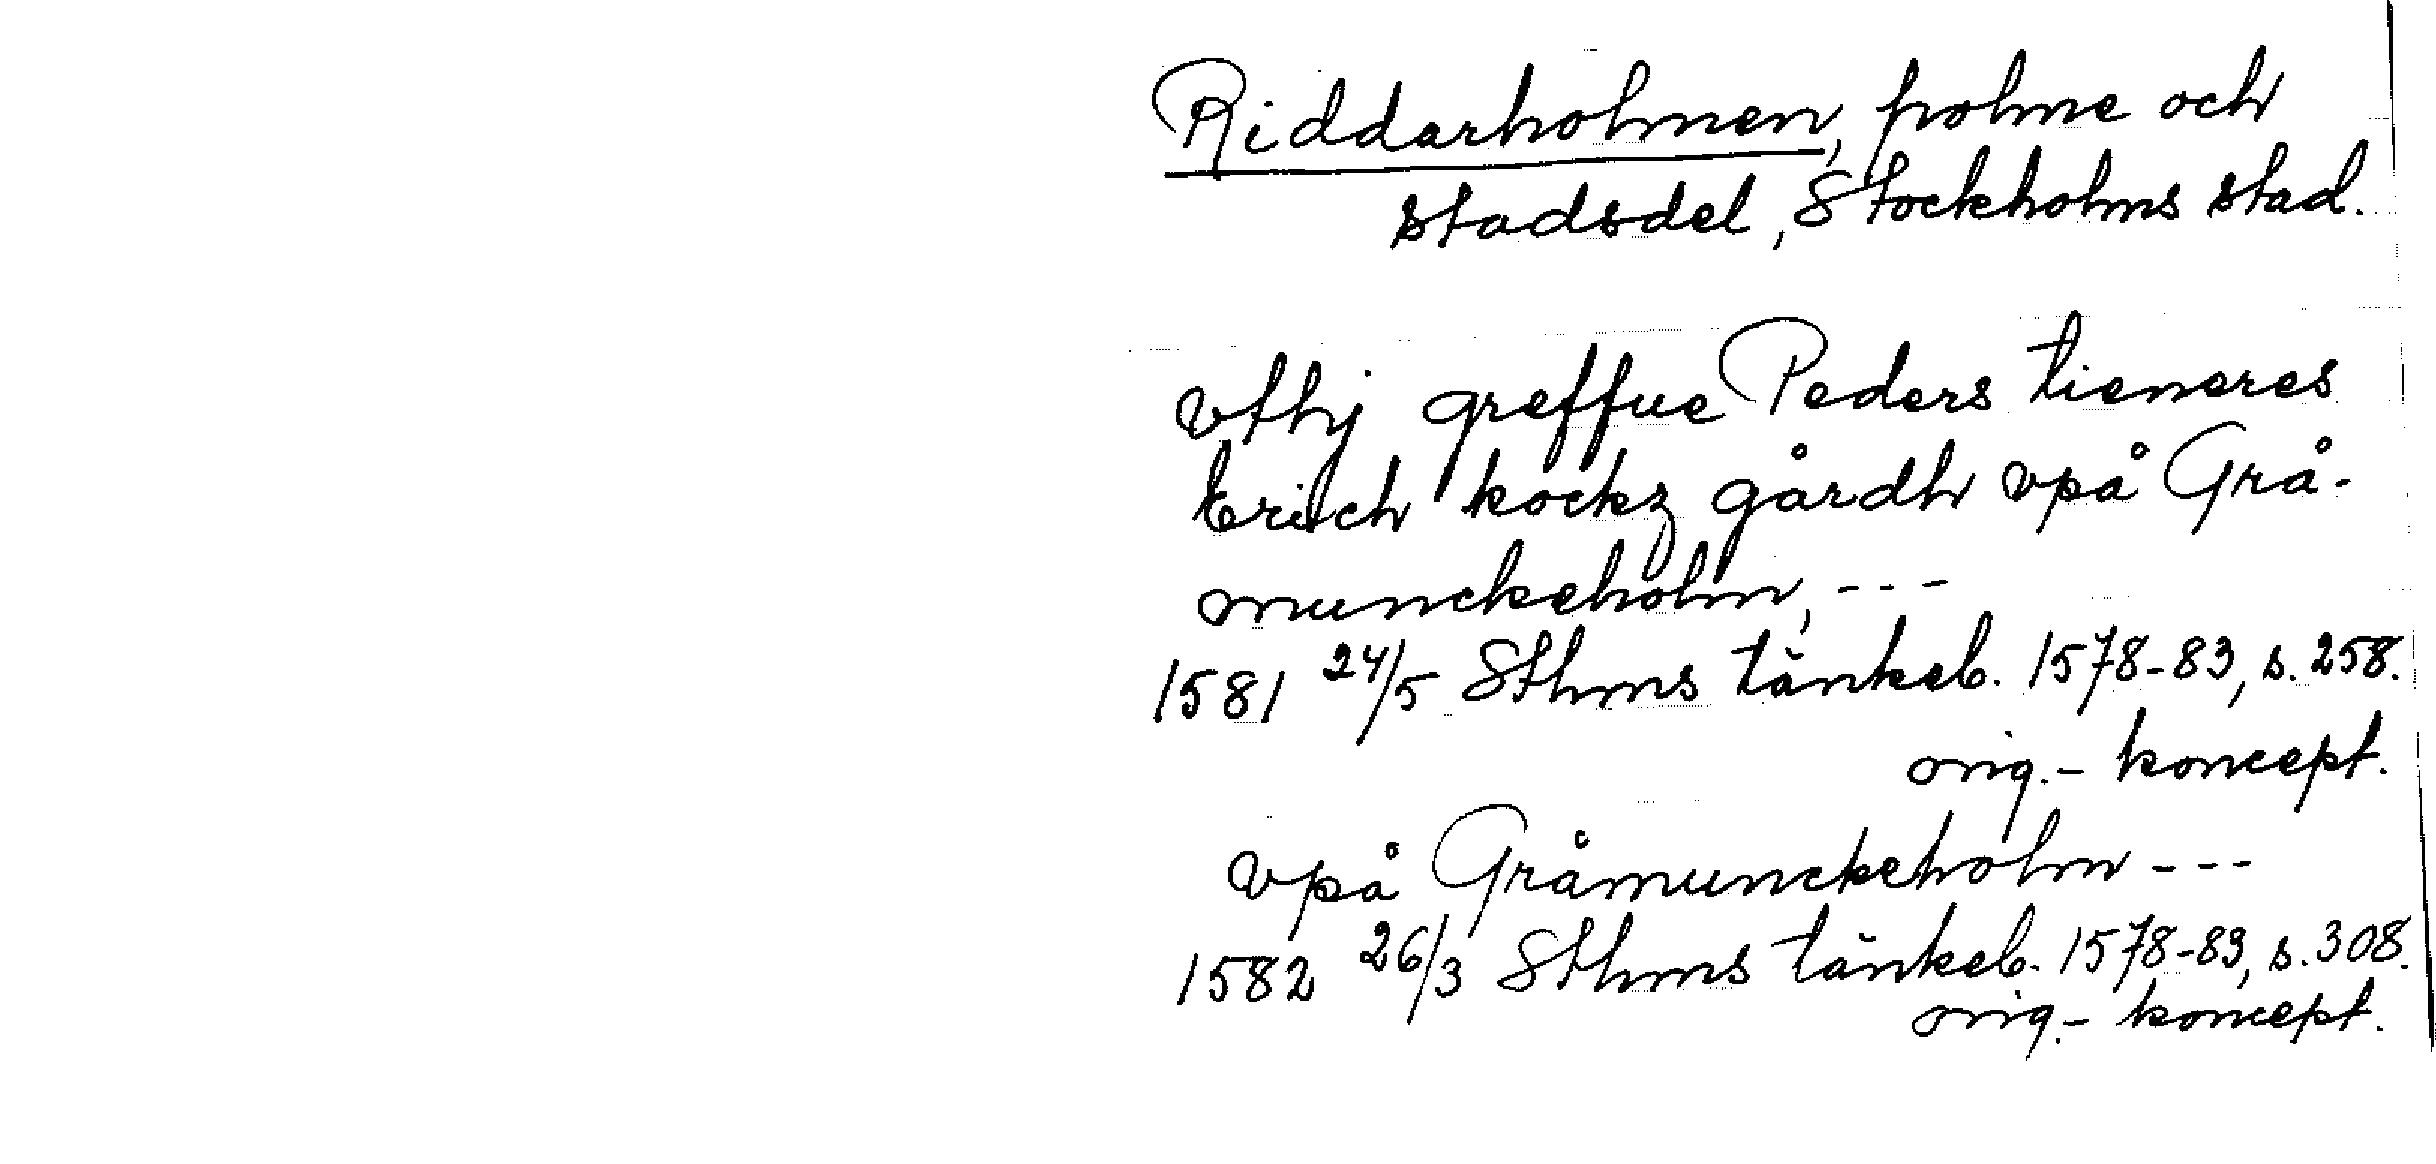 Riddarholmen, holme och
stadsdel, Stockholms stad.
vthj greffue Peders tieneres
Erich kockz gårdh vpå Grå-
munckeholm, ---
1581 24/5 Sthms tänkeb. 1578-83, s. 258.
orig.- koncept.
vpå Gråmunckeholm ---
1582 26/3 Sthms tänkeb. 1578-83, s. 308.
orig.- koncept.